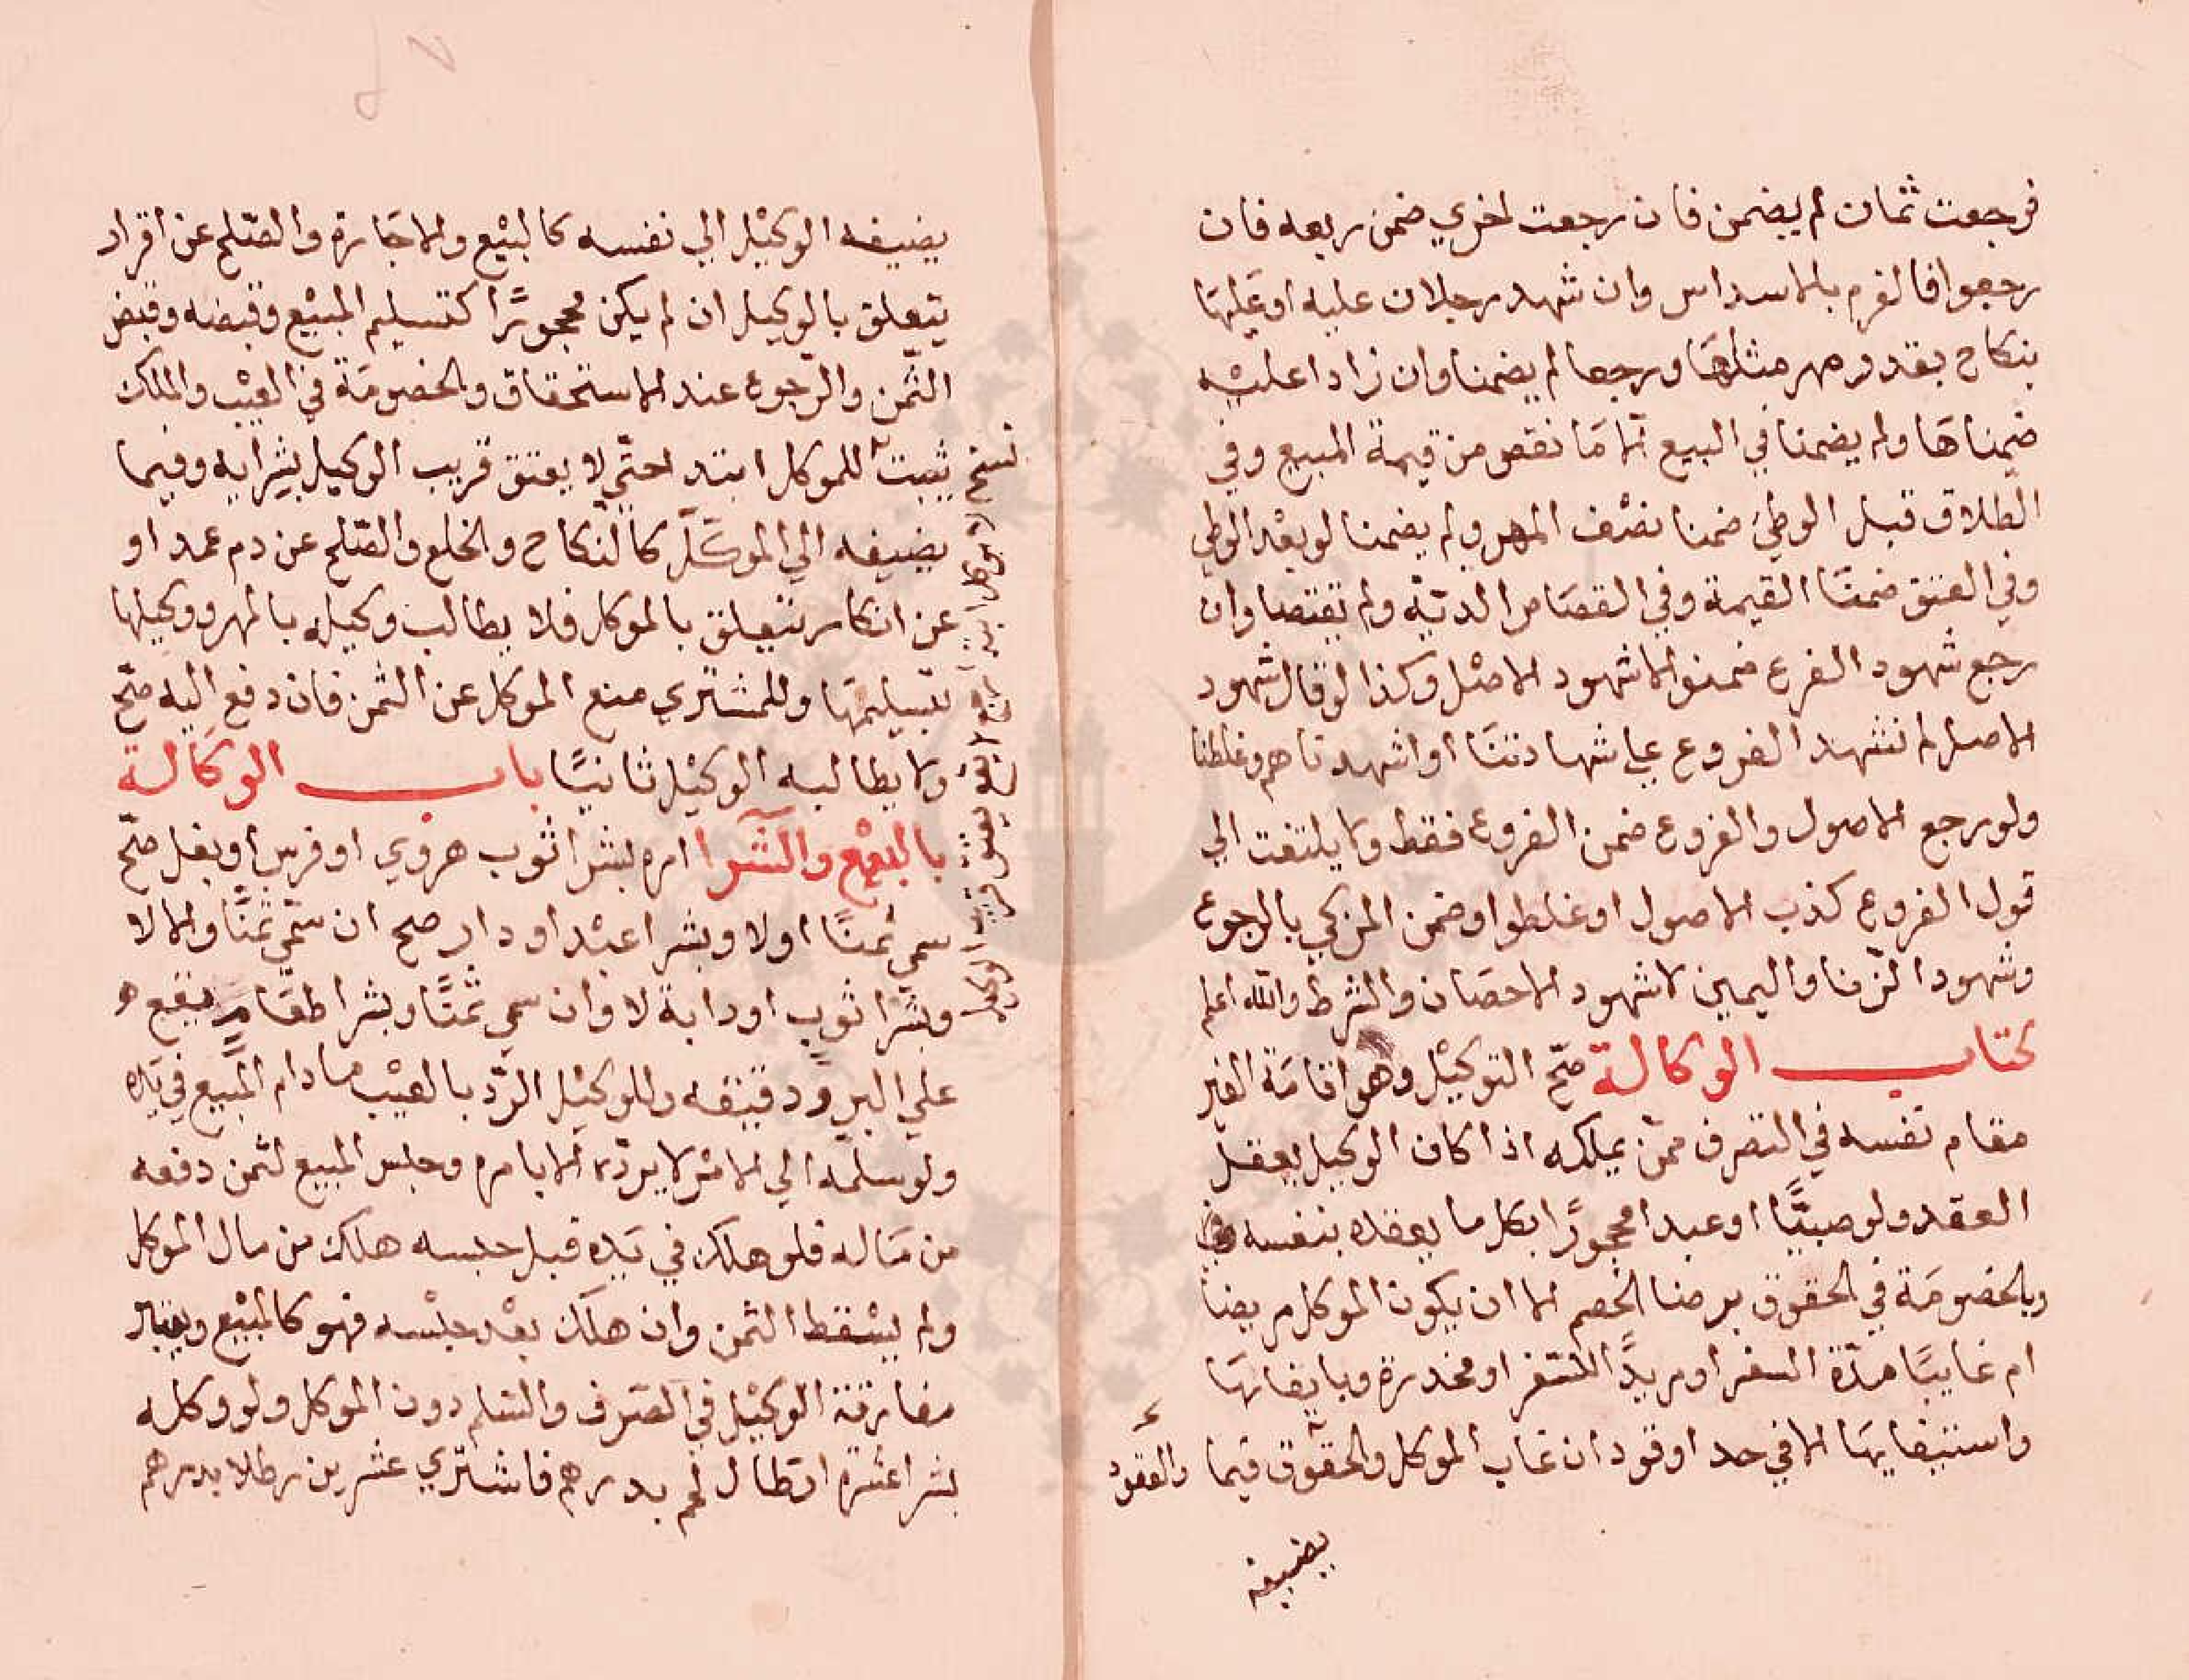 فرجعت ثمان لم يضمن فان رجعت اخري ضمن ربعه فان
رجعوا فالغرم بالاسداس وان شهد رجلان عليه او عليها
بنكاح بقدر مهر مثلها ورجعا لم يضمنا وان زادا عليه
ضمناها ولم يضمنا في البيع الا ما نقص من قيمة المبيع وفي
الطلاق قبل الوطئ ضمنا نصف المهر ولم يضمنا لو بعد الوطي
وفي العتق ضمنا القيمة وفي القصاص الدية ولم يقتصا وان
رجع شهود الفرع ضمنوا لا شهود الاصل وكذا لو قال شهود
الاصل لم نشهد الفروع علي شهادتنا او اشهدناهم وغلطنا
ولو رجع الاصول والفروع ضمن الفروع فقط ولا يلتفت الي
قول الفروع كذب الاصول او غلطوا وضمن المزكي بالرجوع
وشهود الزنا واليمين لا شهود الاحصان والشرط والله اعلم
كتاب الوكالة صح التوكيل وهو اقامة الغير
مقام نفسه في التصرف ممن يملكه اذا كان الوكيل يعقل
العقد ولو صبيا او عبدا محجورا بكل ما يعقده بنفسه
وبالخصومة في الحقوق برضا الخصم الا ان يكون الموكل مريضا
ام غايبا مدة السفر او مريدا للسفر او مخدرة وبايفائها
واستيفايها الا في حد او قود ان غاب الموكل والحقوق فيما
والعقود
يضيفه
يضيفه الوكيل الي نفسه كالبيع والاجارة والصلح عن اقرار
يتعلق بالوكيل ان لم يكن محجورا كتسليم المبيع وقبضه وقبض
الثمن والرجوع عند الاستحقاق والخصومة في العيب والملك
يثبت للموكل ابتدا حتي لا يعتق قريب الوكيل بشرايه وفيما
يضيفه الي الموكل كالنكاح والخلع والصلح عن دم عمد او
عن انكار يتعلق بالموكل فلا يطالب وكيله بالمهر ووكيلها
بتسليمها وللمشتري منع الموكل عن الثمن فان دفع اليه صح
ولا يطالبه الوكيل ثانيا باب الوكالة
بالبيع والشرا امره بشرا ثوب هروي او فرس او بغل صح
سمي ثمنا اولا وبشرا عبد او دار صح ان سمي ثمنا والا لا
وبشرا ثوب او دابة لا وان سمي ثمنا وبشرا طعام يقع
علي البر ودقيقه وللوكيل الرد بالعيب ما دام المبيع في يده
ولو سلمه الي الامر لا يرده الا بامره وحبس المبيع لثمن دفعه
من ماله فلو هلك في يده قبل حبسه هلك من مال الموكل
ولم يسقط الثمن وان هلك بعد حبسه فهو كالمبيع ويعتبر
مفارقة الوكيل في الصرف والسلم دون الموكل ولو وكله
بشرا عشرة ارطال لحم بدرهم فاشتري عشرين رطلا بدرهم